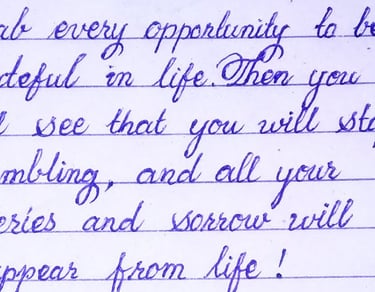 ab every opportunity to be
deful in life. Then you
l see that you will sto
mbling, and all your
eries and sorrow will
appear from life !